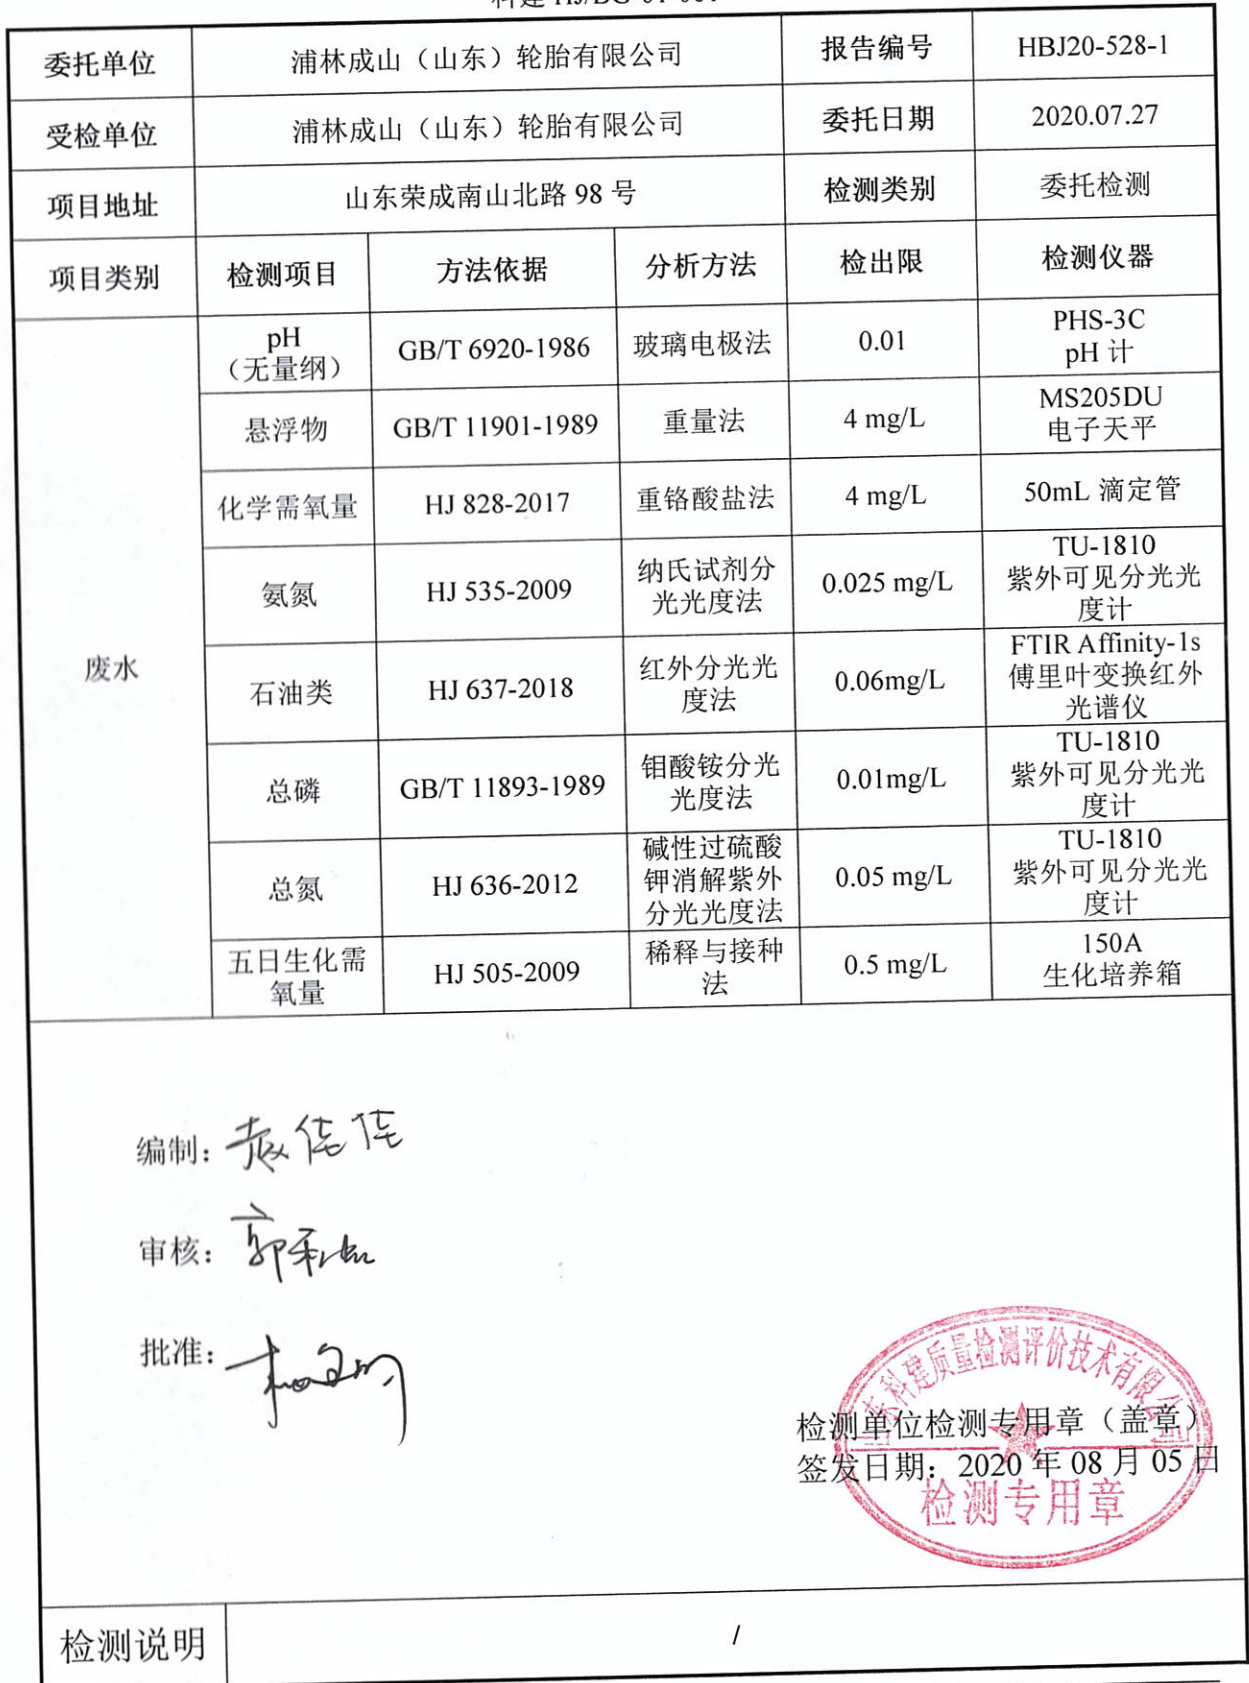 委托单位 浦林成山（山东）轮胎有限公司 报告编号 HBJ20-528-1
受检单位 浦林成山（山东）轮胎有限公司 委托日期 2020.07.27
项目地址 山东荣成南山北路 98 号 检测类别 委托检测
项目类别 检测项目 方法依据 分析方法 检出限 检测仪器
废水
pH
（无量纲）
GB/T 6920-1986
玻璃电极法
0.01
PHS-3C
pH 计
悬浮物
GB/T 11901-1989
重量法
4 mg/L
MS205DU
电子天平
化学需氧量
HJ 828-2017
重铬酸盐法
4 mg/L
50mL 滴定管
氨氮
HJ 535-2009
纳氏试剂分
光光度法
0.025 mg/L
TU-1810
紫外可见分光光
度计
石油类
HJ 637-2018
红外分光光
度法
0.06mg/L
FTIR Affinity-1s
傅里叶变换红外
光谱仪
总磷
GB/T 11893-1989
钼酸铵分光
光度法
0.01mg/L
TU-1810
紫外可见分光光
度计
总氮
HJ 636-2012
碱性过硫酸
钾消解紫外
分光光度法
0.05 mg/L
TU-1810
紫外可见分光光
度计
五日生化需
氧量
HJ 505-2009
稀释与接种
法
0.5 mg/L
150A
生化培养箱
编制：袁佳佳
审核：郭
批准：
山东科建质量检测评价技术有限公司
检测单位检测专用章（盖章）
签发日期：2020 年 08 月 05 日
检测专用章
检测说明 /